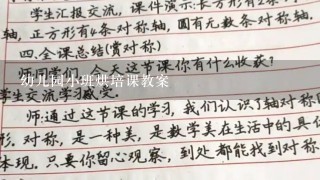 学生汇报交流,课件演示:长方形有2条
轴,正方形有4条对称轴,圆有无数条对称轴.
四.全课总结(赏对称)
幼儿园小班烘培课教案
今天这节课你有什么收获?
学生交流学习
师:通过这节课的学习,我们认识了轴对称
形.对称,是一种美,是数学美在生活中的具
体现.只要你留心观察,到处都能找到对称